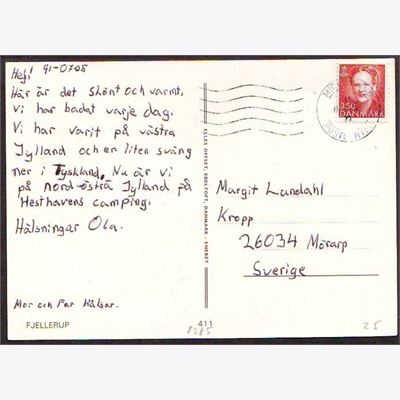 Hej! 91-07-08
Här är det skönt och varmt.
Vi har badat varje dag.
Vi har varit på västra
Jylland och en liten sväng
ner i Tyskland. Nu är vi
på nord-östra Jylland på
Hesthavens camping.
Hälsningar Ola.
Mor och Far Hälsar.
FJELLERUP
ELLES OFFSET, EBELTOFT, DANMARK - ENERET
411
8585
3.50
DANMARK
Margit Lundahl
Kropp
26034 Mörarp
Sverige
25